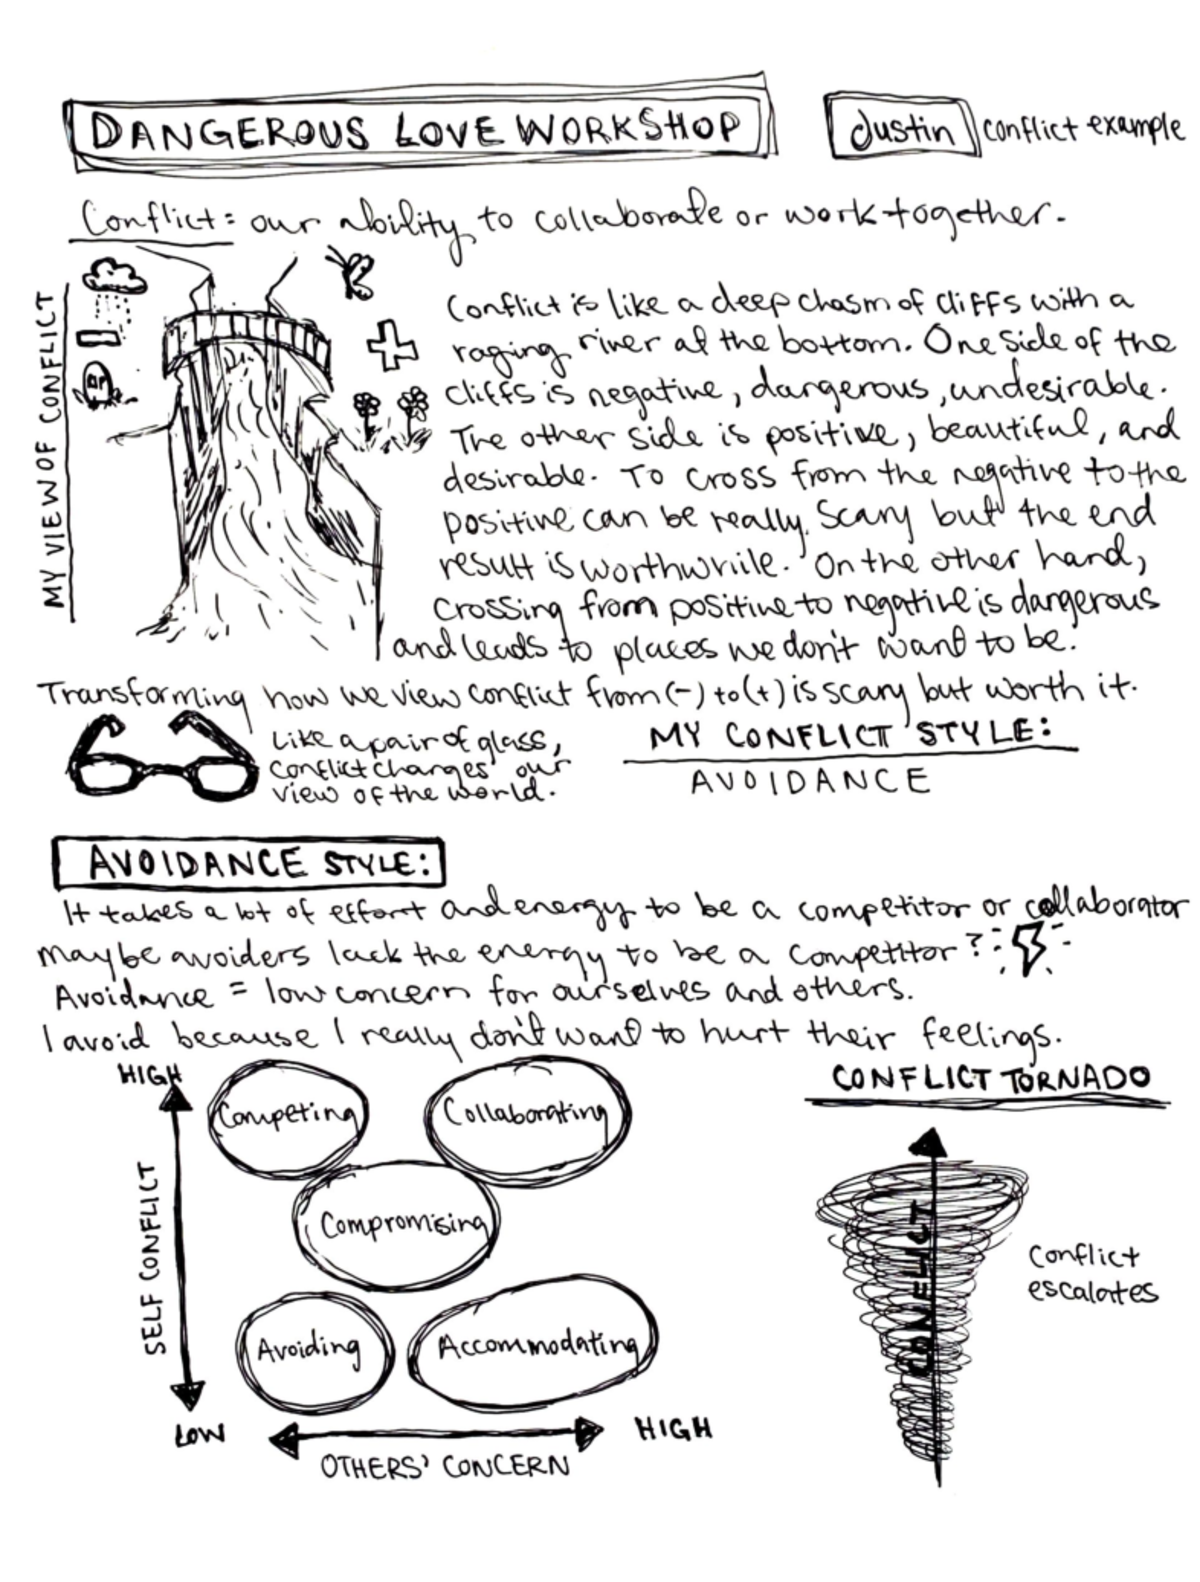 DANGEROUS LOVE WORKSHOP
Justin conflict example
Conflict: our ability to collaborate or work together.
MY VIEW OF CONFLICT
Conflict is like a deep chasm of cliffs with a
raging river at the bottom. One side of the
cliffs is negative, dangerous, undesirable.
The other side is positive, beautiful, and
desirable. To cross from the negative to the
positive can be really scary but the end
result is worthwhile. On the other hand,
crossing from positive to negative is dangerous
and leads to places we don't want to be.
Transforming how we view conflict from (-) to (+) is scary but worth it.
Like a pair of glass,
conflict changes our
view of the world.
MY CONFLICT STYLE:
AVOIDANCE
AVOIDANCE STYLE:
It takes a lot of effort and energy to be a competitor or collaborator
maybe avoiders lack the energy to be a competitor?
Avoidance = low concern for ourselves and others.
I avoid because I really don't want to hurt their feelings.
HIGH
SELF CONFLICT
LOW
Competing
Collaborating
Compromising
Avoiding
Accommodating
HIGH
OTHERS' CONCERN
CONFLICT TORNADO
CONFLICT
Conflict
escalates